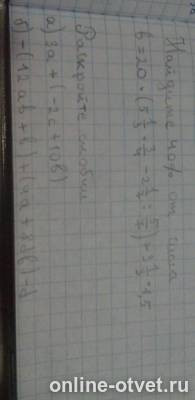 Найдите 40% от числа
b = 20 · (5 1/3 + 3/4 - 2 1/2 : 5/7) + 3 1/3 · 1,5
Раскройте скобки
а) 3a + (-2c + 10b)
б) -(12ab + b) + (4a + 8b) -
online-otvet.ru